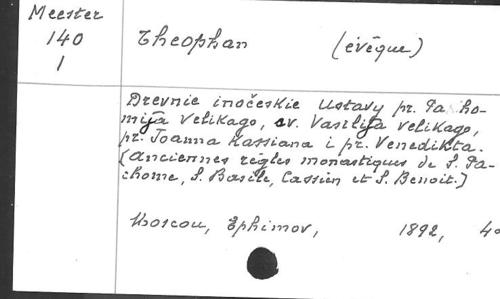 Meester
140
1
Theophan (évêque)
Drevnie inočeskie Ustavy pr. Pacho-
mija Velikago, sv. Vasilija Velikago,
pr. Joanna Kassiana i pr. Venedikta.
(anciennes règles monastiques de S. Pa-
chome, S. Basile, Cassien et S. Benoit.)
Moscou, Ephimov, 1892, 4o